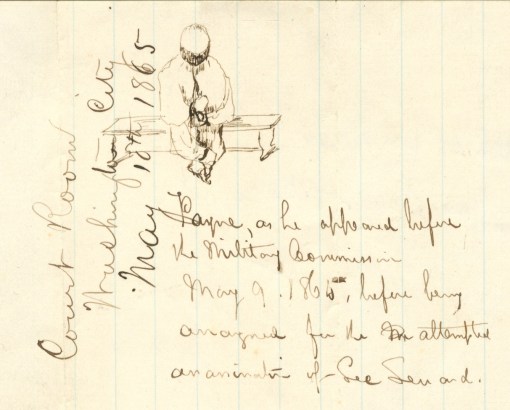 Court Room
Washington City
May 18th 1865
Payne, as he appeared before
the Military Commission
May 9. 1865, before being
arraigned for the attempted
assassination of Sec Seward.